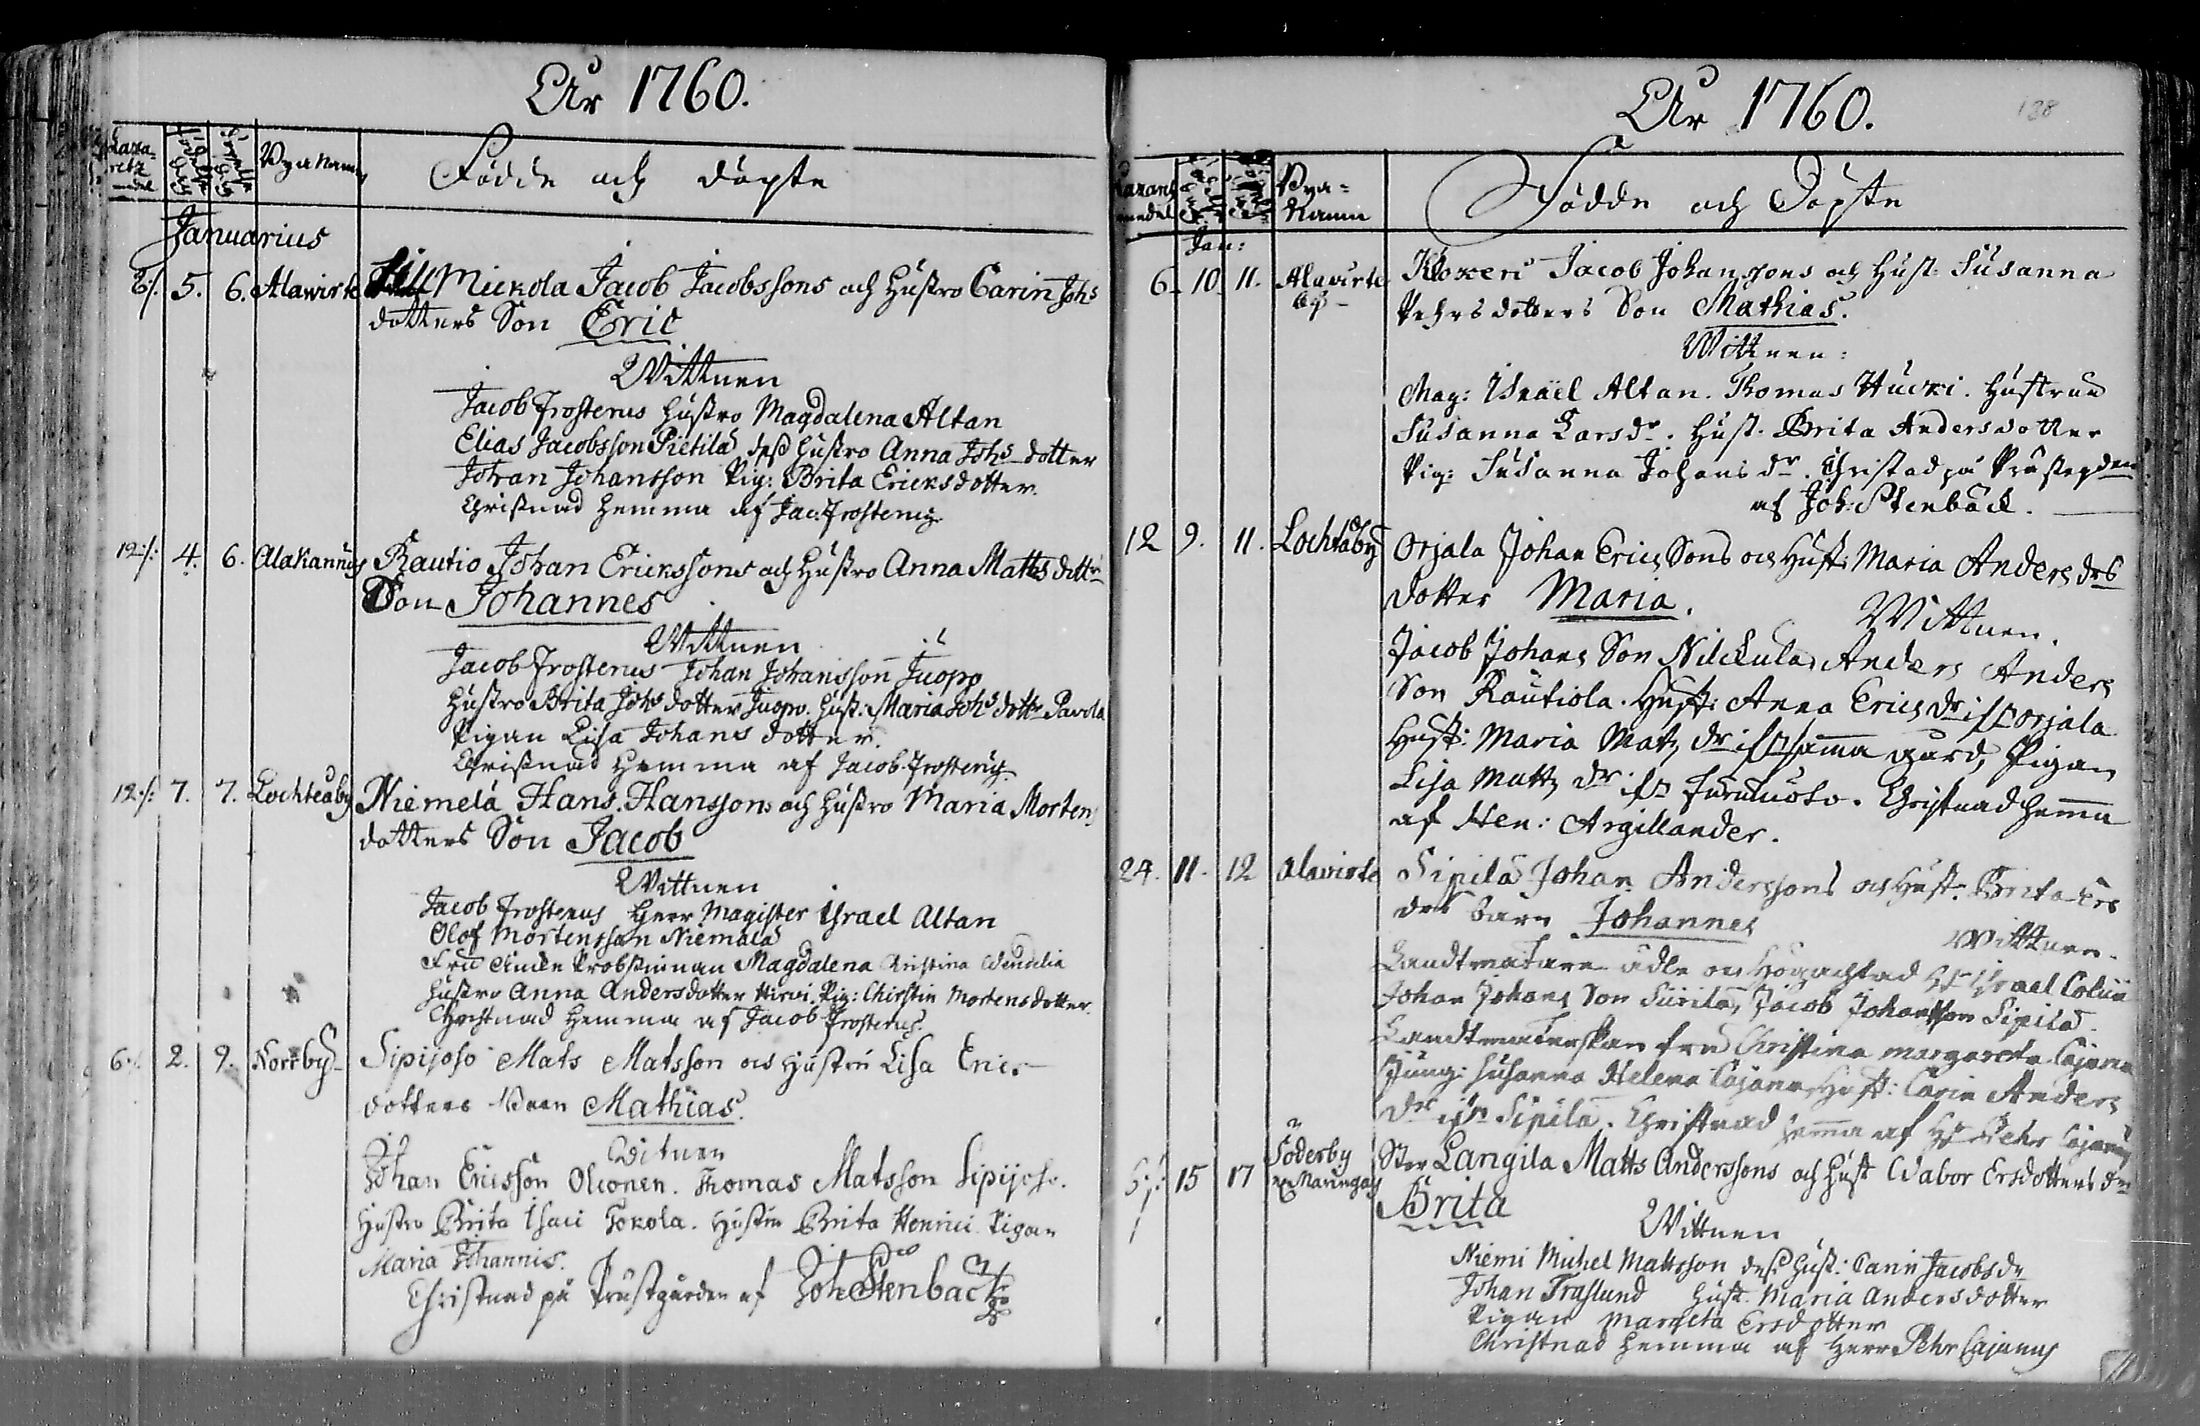 År 1760.
Byanamn
Födde och döpte
Januarius
6./. 5. 6. Alawirte Mickola Jacob Jacobssons och Hustro Carin Johs
dotters Son Eric
Wittnen
Jacob Frosterus Hustro Magdalena Altan
Elias Jacobsson Pietilä, dess hustro Anna Johs dotter
Johan Johansson Pig: Brita Ericksdotter.
Christnad hemma af Jac: Frosterus
12./. 4. 6. Alakannus Rautio Johan Erickssons och Hustro Anna Matts dottrs
Son Johannes
Wittnen
Jacob Frosterus Johan Johansson Juopp
Hustro Brita Johs dotter Juopp. Hust: Maria Johs dottr Pavola
Pigan Lisa Johans dotter.
Christnad hemma af Jacob Frosterus.
12./. 7. 7. Lochteaby Niemelä Hans Hanssons och Hustro Maria Mortens
dotters Son Jacob
Wittnen
Jacob Frosterus Herr Magister Israel Altan
Olof Mortensson Niemälä
Fru Probstinnan Magdalena Christina Wendelia
Hustro Anna Andersdotter Hirvi, Pig: Chirstin Mortensdotter.
Christnad hemma af Jacob Frosterus.
6./. 2. 9. Norrby Sipijoso Mats Matsson och Hustru Lisa Erics
dotters Barn Mathias.
Witnen
Johan Ericsson Olconen. Thomas Matsson Sipijoso.
Hustru Brita Isaci Tokola. Hustru Brita Henrici Pigan
Maria Johannis.
Christnad på Prästgården af Joh Stenbäck
År 1760.
128
Bya-
Namn
Födde och Döpte
Jan:
6. 10. 11. Alavirte Klokern Jacob Johanssons och Hust: Susanna
by Pehrsdotters Son Mathias.
Wittnen:
Mag: Israël Altan. Thomas Hucki. Hustrun
Susanna Larsdr. Hust. Brita Andersdotter
Pig: Susanna Johans dr. Christnad på Prästegden
af Joh: Stenbäck.
12 9. 11. Lochtåby Orjala Johan Erics Sons och Hust: Maria Anders drs
dotter Maria.
Wittnen.
Jacob Johans Son Nilckula, Anders Anders
Son Rautiola. Hust: Anna Erics dr ifrn orjala
Hust: Maria Mats dr ifrn samma gård, Pigan
Lisa Matts dr ifrn . Christnad hemma
af Hen: Argillander.
24. 11. 12 Alavirte Sipilä Johan Anderssons och Hust: Brita Ers
drs barn Johannes
Wittnen.
Landtmätaren ädle och Högachtad Hr Israel
Johan Johans Son Siirilä, Jacob Johansson Sipilä.
Landtmäterskan fru Christina margareta Cajana
Jung: Susanna Helena Cajana, Hust: Carin Anders
dr ifrn Sipilä. Christnad hemma af Hr Pehr Cajanus
6./. 15 17 Söderby Stor Langila Matts Anderssons och Hust Wabor Ersdotters dr
Maringais Brita
Wittnen
Niemi Michel Mattsson dess hust: Carin Jacobsdr
Johan Fraslund Hust. Maria Andersdotter
Pigan Margeta Ersdotter
Christnad hemma af Herr Pehr Cajanus